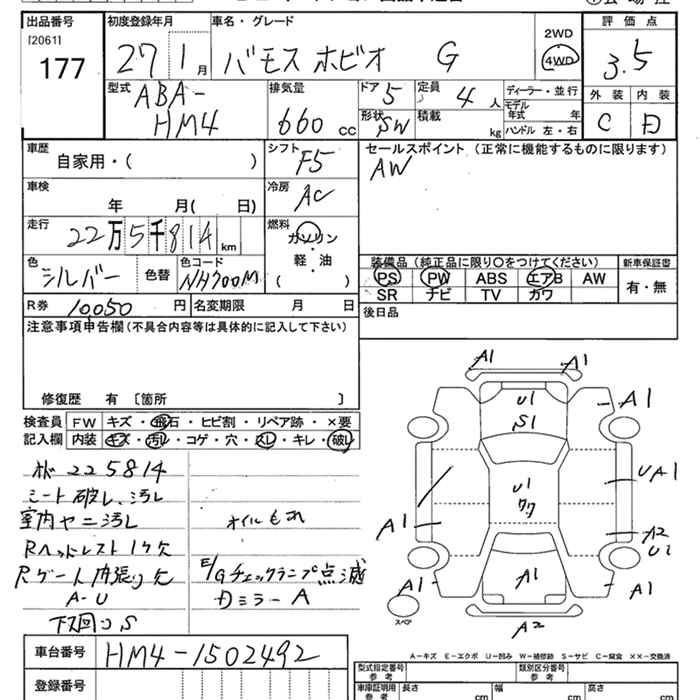 出品番号
[2061]
177
初度登録年月
27 1月
車名・グレード
バモスホビオ G
2WD
4WD
評価点
3.5
型式
ABA-
HM4
排気量
660 cc
ドア
5
形状
SW
定員
4人
積載
kg
ディーラー・並行
モデル
年式 年
ハンドル 左・右
外装
C
内装
D
車歴
自家用・( )
シフト
F5
セールスポイント (正常に機能するものに限ります)
AW
車検
年 月( 日)
冷房
AC
走行
22万5千814km
燃料
ガソリン
・
軽・油
( )
色
シルバー
色替
色コード
NH700M
装備品(純正品に限り〇をつけてください)
PS PW ABS エアB AW
SR ナビ TV カワ
新車保証書
有・無
R券
10050円
名変期限 月 日
後日品
注意事項申告欄(不具合内容等は具体的に記入して下さい)
修復歴 有 〔箇所 〕
検査員
記入欄
FW キズ・飛石・ヒビ割・リペア跡・×要
内装 キズ・汚レ・コゲ・穴・スレ・キレ・破レ
225814
シート破レ、汚レ
室内ヤニ汚レ
Rヘッドレスト1ケ欠
Rゲート内張り欠
A-U
下回りS
オイルもれ
E/Gチェックランプ点滅
Dミラー A
A1
A1
U1
S1
A1
U1
UA1
A1
A2
U1
A1
A1
A1
A2
スペア
A-キズ E-エクボ U-凹み W-補修跡 S-サビ C-腐食 XX-交換済
車台番号
HM4-1502492
登録番号
型式指定番号
参考
類別区分番号
参考
車庫証明用
参考
長さ cm
幅 cm
高さ cm